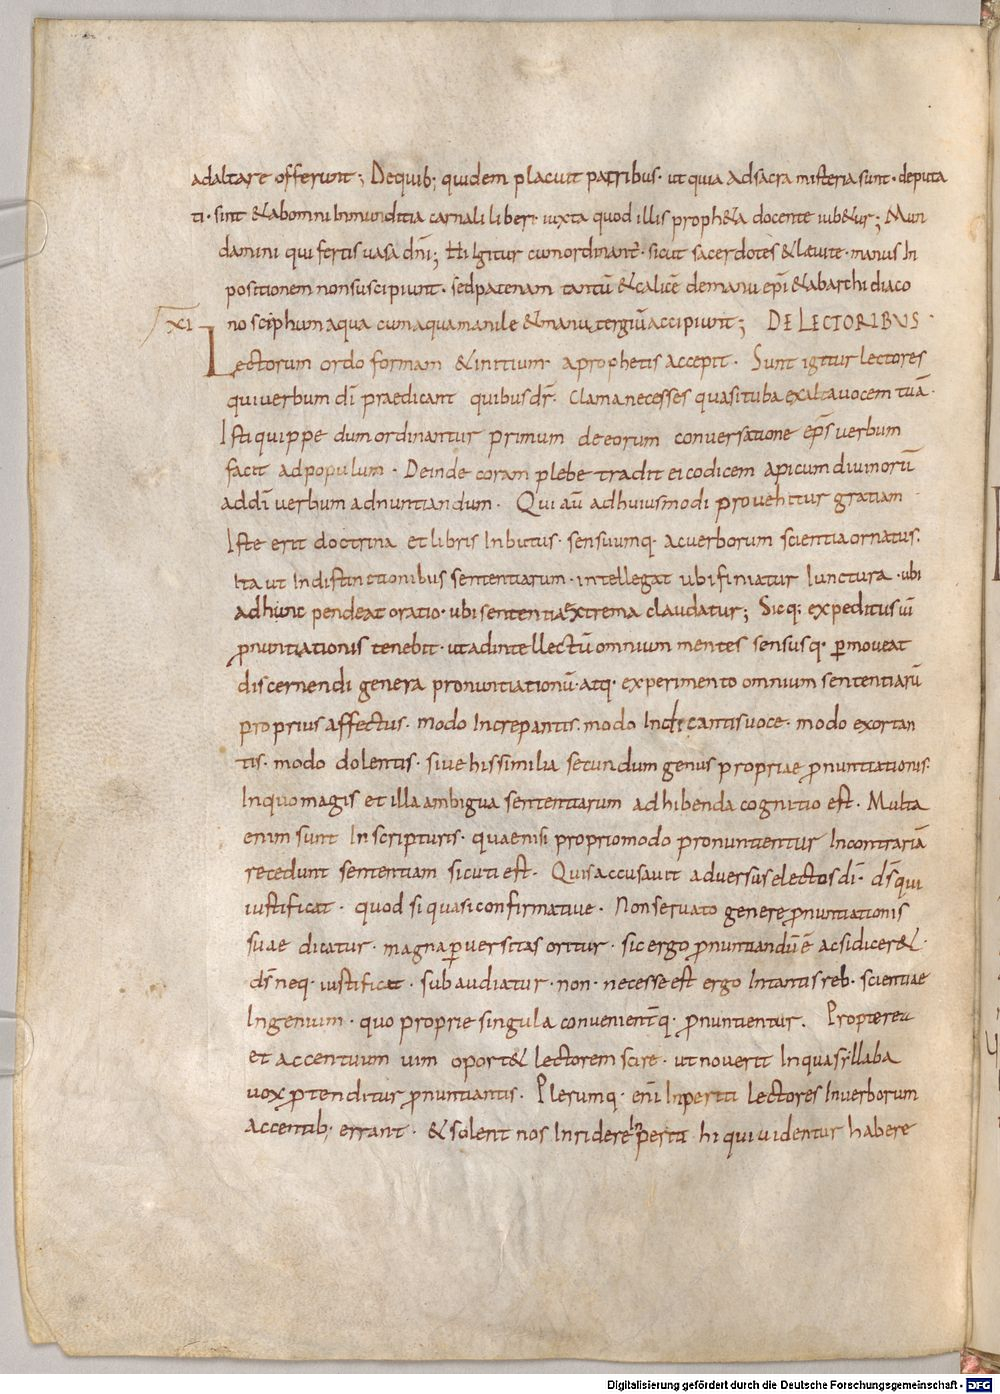 adaltare offerunt; Dequib; quidem placuit patribus· ut quia adsacra misteria sunt· deputa
ti· sint &abomni Inmunditia carnali liberi· iuxta quod illis proph&a docente iub&ur; Mun
damini qui fertis uasa dn̄i; Hi Igitur cumordinant̄· sicut sacerdotes &leuite· manus In
positionem nonsuscipiunt· sedpatenam tantū &calicē demanu ep̄i &abarchidiaco
XI no sciphum aqua cumaquamanile &manu tergiū accipiunt; DE LECTORIBUS·
Lectorum ordo formam &initium aprophetis accepit· Sunt igitur lectores
quiuerbum dī praedicant quibus dr̄· clamanecesses quasituba exaltauocem tuā·
Isti quippe dumordinantur primum deeorum conuersatione ep̄s uerbum
facit adpopulum· Deinde coram plebe tradit ei codicem apicum diuinorū
addī uerbum adnuntiandum· Qui aū adhuiusmodi prouehitur gratiam
Iste erit doctrina et libris Inbutus· sensuumq· acuerborum scientia ornatus·
Ita ut Indistinctionibus sententiarum· intellegat ubi finiatur Iunctura· ubi
adhunc pendeat oratio· ubi sententia extrema claudatur; Sicq; expeditus uī
p̱nuntiationis tenebit· utadintellectū omnium mentes sensusq· ꝑmoueat
discernendi genera pronuntiationū· atq· experimento omnium sententiarū
proprius affectus· modo Increpantis· modo Indicantis uoce· modo exortan
tis· modo dolentis· siue hissimilia secundum genus propriae ꝓnuntiationis·
Inquo magis et illa ambigua sententiarum adhibenda cognitio est· Multa
enim sunt Inscripturis· quaenisi propriomodo pronuntientur Incontrariā
recedunt sententiam sicuti est· Quis accusauit aduersus electos dī· ds̄ qui
iustificat· quod si quasi confirmatiue· Non seruato genere ꝓnuntiationis
suae dicatur· magna ꝑuersitas oritur· sic ergo ꝓnuntiandū ē acsi dicer&·
ds̄ neq· iustificat· subaudiatur· non· necesse est ergo Intantis reb· scientiae
Ingenium· quo proprie singula conuenient̄q· ꝓnuntientur. Propterea
et accentuum uim oport& lectorem scire· ut nouerit Inquasyllaba
uox ꝓtenditur ꝓnuntiantis· Plerumq· enī Inperiti lectores Inuerborum
accentib; errant· & solent nos Inridere Inperiti hi qui uidentur habere
Digitalisierung gefördert durch die Deutsche Forschungsgemeinschaft - DFG